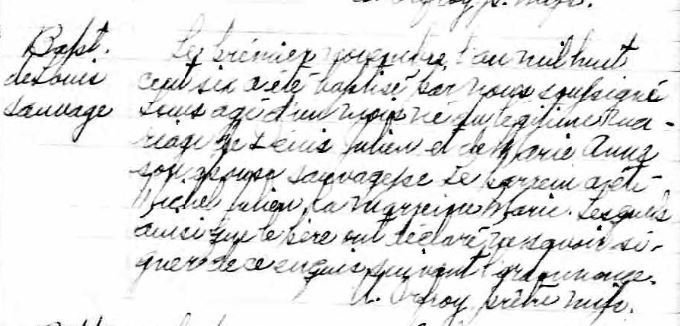 Bapt.
de Louis
Sauvage
Le prémier novembre l'an mil huit
cent six a été baptisé par nous soussigné
Louis agé d'un mois né du légitime ma-
riage de Denis Julien et de Marie Anne
son épouse sauvagesse Le parrein a été
Michel Julien, la marreine Marie. Lesquels
ainsi que le père ont déclaré ne savoir si-
gner de ce enquis suivant l'ordonnance.
prêtre miss.